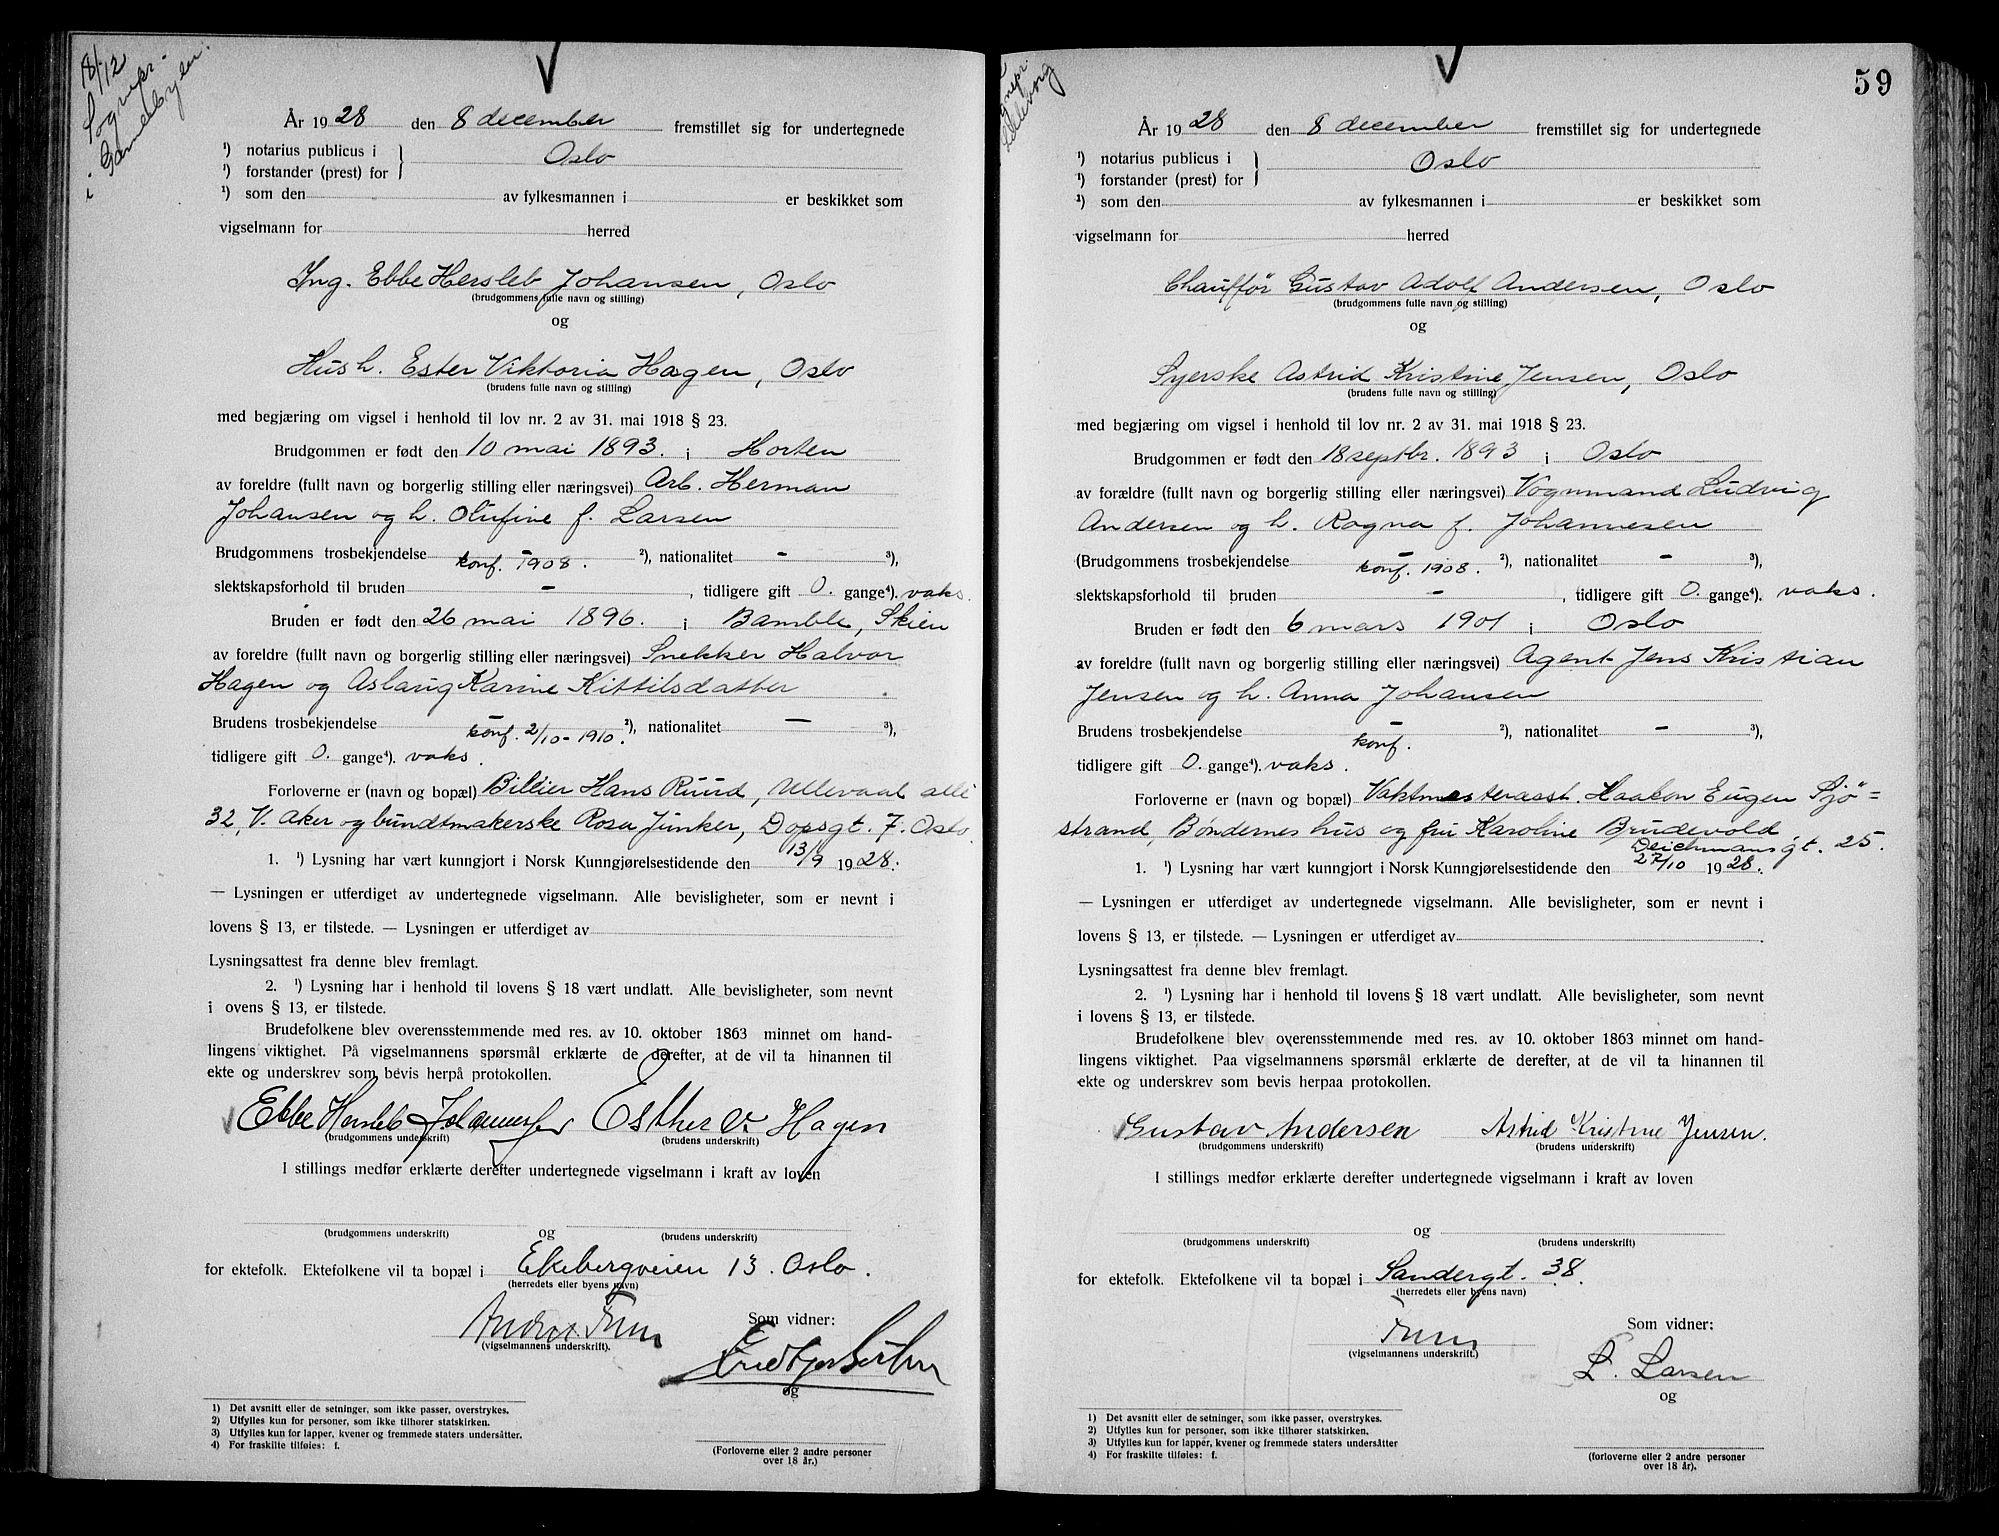 18/12
Sognepr.
i Gamlebyen.
År 1928 den 8 december fremstillet sig for undertegnede
¹) notarius publicus i } Oslo
¹) forstander (prest) for
¹) som den av fylkesmannen i er beskikket som
vigselmann for herred
Ing. Ebbe Hersleb Johansen, Oslo
(brudgommens fulle navn og stilling)
og
Hush. Ester Viktoria Hagen, Oslo
(brudens fulle navn og stilling)
med begjæring om vigsel i henhold til lov nr. 2 av 31. mai 1918 § 23.
Brudgommen er født den 10 mai 1893. i Horten
av foreldre (fullt navn og borgerlig stilling eller næringsvei) Arb. Herman
Johansen og h. Olufine f. Larsen
Brudgommens trosbekjendelse – konf. 1908. ²), nationalitet – ³),
slektskapsforhold til bruden – , tidligere gift 0. gange⁴). vaks.
Bruden er født den 26 mai 1896. i Bamble, Skien
av foreldre (fullt navn og borgerlig stilling eller næringsvei) Snekker Halvor
Hagen og Aslaug Karine Kittilsdatter
Brudens trosbekjendelse – konf. 2/10-1910. ²), nationalitet – ³),
tidligere gift 0. gange⁴). vaks.
Forloverne er (navn og bopæl) Hans Ruud, Ullevaal allé
32, V. Aker og bundtmakerske Rosa Junker, Dopsgt. 7. Oslo.
1. ¹) Lysning har vært kunngjort i Norsk Kunngjørelsestidende den 13/9 1928.
— Lysningen er utferdiget av undertegnede vigselmann. Alle bevisligheter, som er nevnt i
lovens § 13, er tilstede. — Lysningen er utferdiget av
Lysningsattest fra denne blev fremlagt.
2. ¹) Lysning har i henhold til lovens § 18 vært undlatt. Alle bevisligheter, som nevnt
i ovens § 13, er tilstede.
Brudefolkene blev overensstemmende med res. av 10. oktober 1863 minnet om hand-
lingens viktighet. På vigselmannens spørsmål erklærte de derefter, at de vil ta hinannen til
ekte og underskrev som bevis herpå protokollen.
Ebbe Hersleb Johannesen Esther V. Hagen
(brudgommens underskrift) (brudens underskrift)
I stillings medfør erklærte derefter undertegnede vigselmann i kraft av loven
og
(brudgommens underskrift) (brudens underskrift)
for ektefolk. Ektefolkene vil ta bopæl i Ekebergveien 13. Oslo.
(herredets eller byens navn)
Som vidner:
(vigselmannens underskrift).
og
1) Det avsnitt eller de setninger, som ikke passer, overstrykes.
2) Utfylles kun for personer, som ikke tilhører statskirken.
3) Utfylles kun for lapper, kvener og fremmede staters undersåtter.
4) For fraskilte tilføies: f.
(Forloverne eller 2 andre personer
over 18 år.)
59
År 1928 den 8 december fremstillet sig for undertegnede
¹) notarius publicus i } Oslo
¹) forstander (prest) for
¹) som den av fylkesmannen i er beskikket som
vigselmann for herred
Chauffør Gustav Adolf Andersen, Oslo
(brudgommens fulle navn og stilling)
og
Syerske Astrid Kristine Jensen, Oslo
(brudens fulle navn og stilling)
med begjæring om vigsel i henhold til lov nr. 2 av 31. mai 1918 § 23.
Brudgommen er født den 18 septbr. 1893 i Oslo
av forældre (fullt navn og borgerlig stilling eller næringsvei) Vognmand Ludvig
Andersen og h. Ragna f. Johannesen
(Brudgommens trosbekjendelse – konf. 1908. ²), nationalitet – ³),
slektskapsforhold til bruden – , tidligere gift 0. gange⁴). vaks.
Bruden er født den 6 mars 1901 i Oslo
av foreldre (fullt navn og borgerlig stilling eller næringsvei) Agent Jens Kristian
Jensen og h. Anna Johansen
Brudens trosbekjendelse – konf. ²), nationalitet – ³),
tidligere gift 0. gange⁴). vaks.
Forloverne er (navn og bopæl) Vaktmesterasst. Haakon Eugen Sjö=
strand, Bøndernes hus og fru Karoline Brudevold
Deichmansgt. 25.
1. ¹) Lysning har vært kunngjort i Norsk Kunngjørelsestidende den 27/10 1928.
— Lysningen er utferdiget av undertegnede vigselmann. Alle bevisligheter, som er nevnt i
lovens § 13, er tilstede. — Lysningen er utferdiget av
Lysningsattest fra denne blev fremlagt.
2. ¹) Lysning har i henhold til lovens § 18 vært undlatt. Alle bevisligheter, som nevnt
i lovens § 13, er tilstede.
Brudefolkene blev overensstemmende med res. av 10. oktober 1863 minnet om hand-
lingens viktighet. Paa vigselmannens spørsmål erklærte de derefter, at de vil ta hinannen til
ekte og underskrev som bevis herpaa protokollen.
Gustav Andersen Astrid Kristine Jensen.
(brudgommens underskrift) (brudens underskrift)
I stillings medfør erklærte derefter undertegnede vigselmann i kraft av loven
og
(brudgommens underskrift) (brudens underskrift)
for ektefolk. Ektefolkene vil ta bopæl i Sandergt. 38.
(herredets eller byens navn)
Som vidner:
(vigselmannens underskrift.)
L. Larsen
og
1) Det avsnitt eller de setninger, som ikke passer, overstrykes.
2) Utfylles kun for personer, som ikke tilhører statskirken.
3) Utfylles kun for lapper, kvener og fremmede staters undersåtter
4) For fraskilte tilføies: f.
(forloverne eller 2 andre personer
over 18 år).